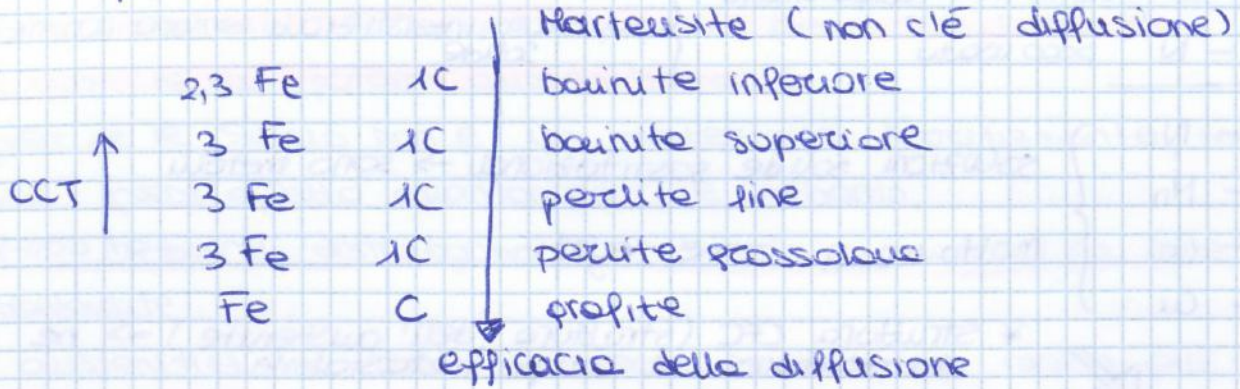 Martensite (non c'é diffusione)
2,3 Fe 1C bainite inferiore
3 Fe 1C bainite superiore
CCT 3 Fe 1C perlite fine
3 Fe 1C perlite grossolana
Fe C grafite
efficacia della diffusione